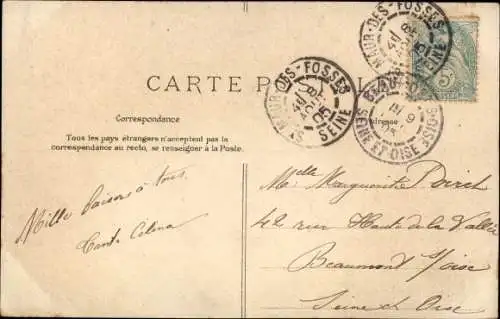 CARTE P
Correspondance
Tous les pays étrangers n'acceptent pas la
correspondance au recto, se renseigner à la Poste.
Adresse
ST MAUR-DES-FOSSES
SEINE
05
ST MAUR-DES-FOSSES
SEINE
05
SEINE ET OISE
9
05
5
Mille baisers à tous
Tante Celina
Melle Marguerite
42 rue Haute de la Vallée
Beaumont s/oise
Seine et Oise